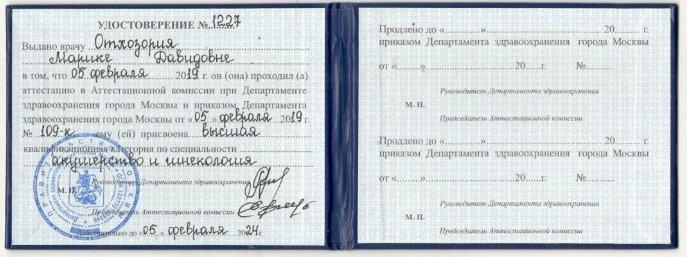 УДОСТОВЕРЕНИЕ № 1227
Выдано врачу Отхозория
Марике Давидовне
в том, что 05 февраля 2019 г. он (она) проходил (а)
аттестацию в Аттестационной комиссии при Департаменте
здравоохранения города Москвы и приказом Департамента
здравоохранения города Москвы от «05» февраля 2019 г.
№ 109-к ему (ей) присвоена высшая
квалификационная категория по специальности
акушерство и гинекология
Руководитель Департамента здравоохранения
М. П.
Председатель Аттестационной комиссии
Действительно до «05» февраля 2024 г.
Продлено до «............» 20 г.
приказом Департамента здравоохранения города Москвы
от «........» 20 г. №
Руководитель Департамента здравоохранения
М. П.
Председатель Аттестационной комиссии
Продлено до «............» 20 г.
приказом Департамента здравоохранения города Москвы
от «........» 20 г. №
Руководитель Департамента здравоохранения
М. П.
Председатель Аттестационной комиссии